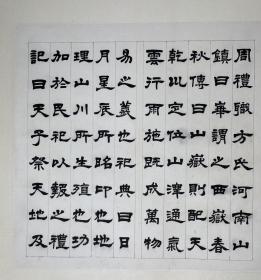 周禮職方氏河南山
鎮曰崋謂之西嶽春
秋傳曰山嶽則配天
乾巛定位山澤通氣
雲行雨施既成萬物
易之義也祀典曰日
月星辰所昭卬也地
理山川所生殖也功
加於民祀以報之禮
記曰天子祭天地及